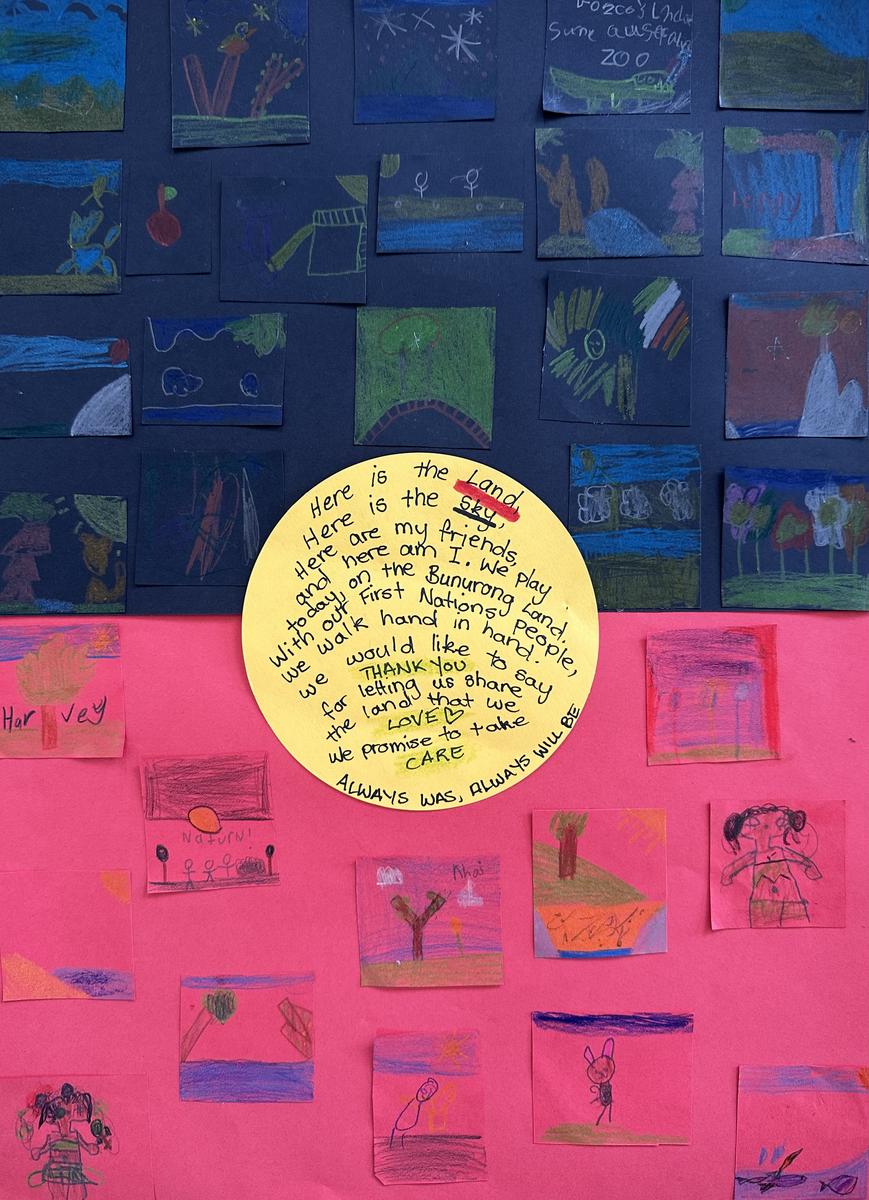 ZOO
Leggy
Here is the Land,
Here is the Sky,
Here are my friends,
and here am I. We play
today, on the Bunurong Land.
With our First Nations people,
we walk hand in hand.
We would like to say
THANK YOU
for letting us share
the land that we
LOVE♡
We promise to take
CARE
ALWAYS WAS, ALWAYS WILL BE
Harvey
Naturn!
Khai